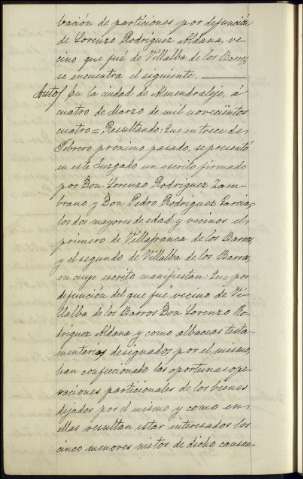 bración de particiones por defunción
de Lorenzo Rodriguez Aldana, ve-
cino que fué de Villalba de los Barros,
se encuentra el siguiente.
Auto/ En la ciudad de Almendralejo, á
cuatro de Marzo de mil novecientos
cuatro = Resultando: Que en trece de
Febrero próximo pasado, se presentó
en este Juzgado un escrito firmado
por Don Lorenzo Rodriguez Zam-
brano y Don Pedro Rodriguez Garcia,
los dos mayores de edad y vecinos el
primero de Villafranca de los Barros,
y el segundo de Villalba de los Barros,
en cuyo escrito manifiestan: Que por
defunción del que fué vecino de Vi-
llalba de los Barros Don Lorenzo Ro-
driguez Aldana y como albaceas testa-
mentarios designados por el mismo,
han confeccionado las oportunas ope-
raciones particionales de los bienes
dejados por el mismo y como en
ellas resultan estar interesados los
cinco menores nietos de dicho causan-